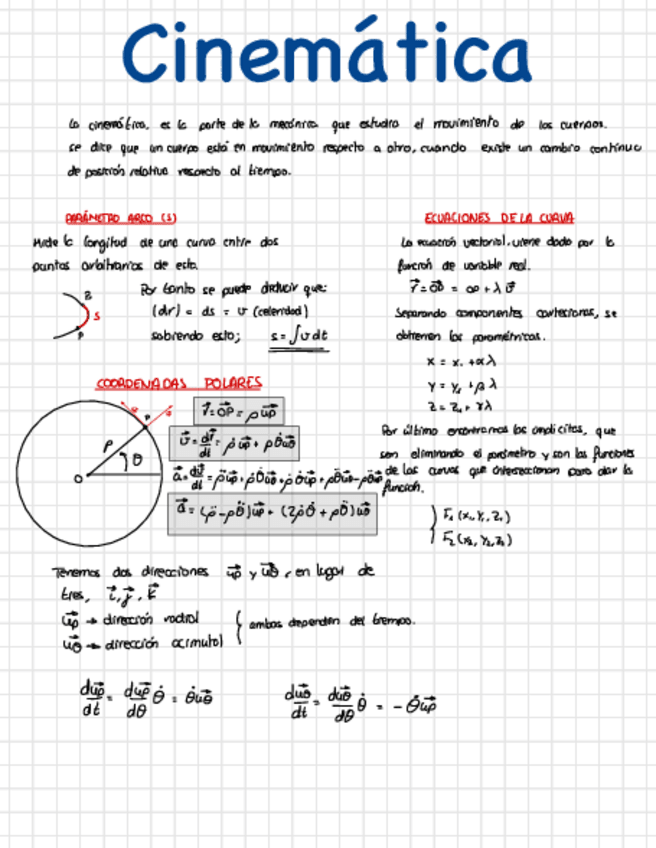 Cinemática
La cinemática, es la parte de la mecánica que estudia el movimiento de los cuerpos.
se dice que un cuerpo está en movimiento respecto a otro, cuando existe un cambio continuo
de posición relativa respecto al tiempo.
PARÁMETRO ARCO (s)
Mide la longitud de una curva entre dos
puntos arbitrarios de esta.
Por tanto se puede deducir que:
|dr| = ds = v (celeridad)
sabiendo esto; s = ∫v dt
B
s
P
ECUACIONES DE LA CURVA
La ecuación vectorial, viene dada por la
función de variable real.
r⃗ = OB⃗ = OP + λ v⃗
Separando componentes cartesianas, se
obtienen las paramétricas.
x = x₁ + αλ
y = y₁ + βλ
z = z₁ + γλ
Por último encontramos las implícitas, que
son eliminando el parámetro y son las funciones
de las curvas que interseccionan para dar la
función.
F₁ (x₁, y₁, z₁)
F₂ (x₂, y₂, z₂)
COORDENADAS POLARES
P
ρ
θ
O
r⃗ = OP⃗ = ρ uρ⃗
v⃗ = dr⃗/dt = ρ̇ uρ⃗ + ρθ̇ uθ⃗
a⃗ = dv⃗/dt = ρ̈ uρ⃗ + ρ̇θ̇ uθ⃗ + ρ̇θ̇ uθ⃗ + ρθ̈ uθ⃗ − ρθ̇² uρ⃗
a⃗ = (ρ̈ − ρθ̇²) uρ⃗ + (2ρ̇θ̇ + ρθ̈) uθ⃗
Tenemos dos direcciones uρ⃗ y uθ⃗, en lugar de
tres, i⃗, j⃗, k⃗
uρ⃗ → dirección radial
uθ⃗ → dirección acimutal
ambas dependen del tiempo.
duρ⃗/dt = duρ⃗/dθ θ̇ = θ̇ uθ⃗
duθ⃗/dt = duθ⃗/dθ θ̇ = − θ̇ uρ⃗